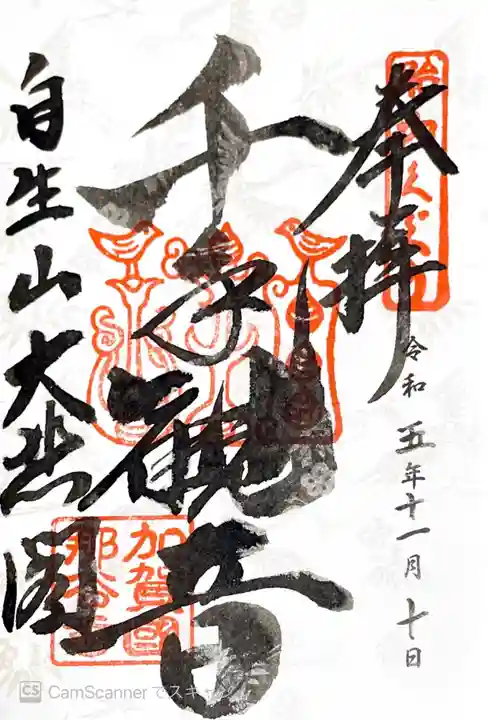 奉拝
令和五年十一月十日
千手観音
自生山大悲閣
加賀國
那谷寺
CS CamScanner でスキャン